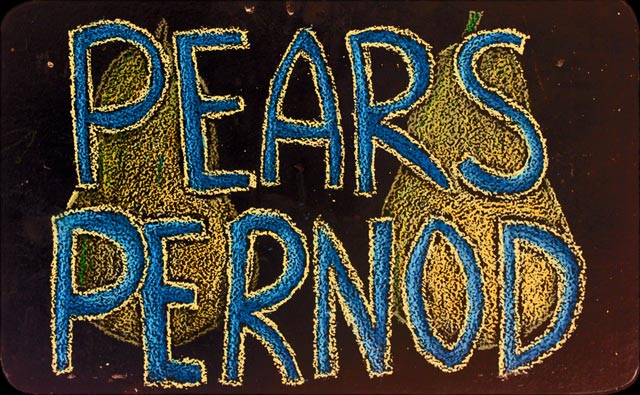 PEARS
PERNOD